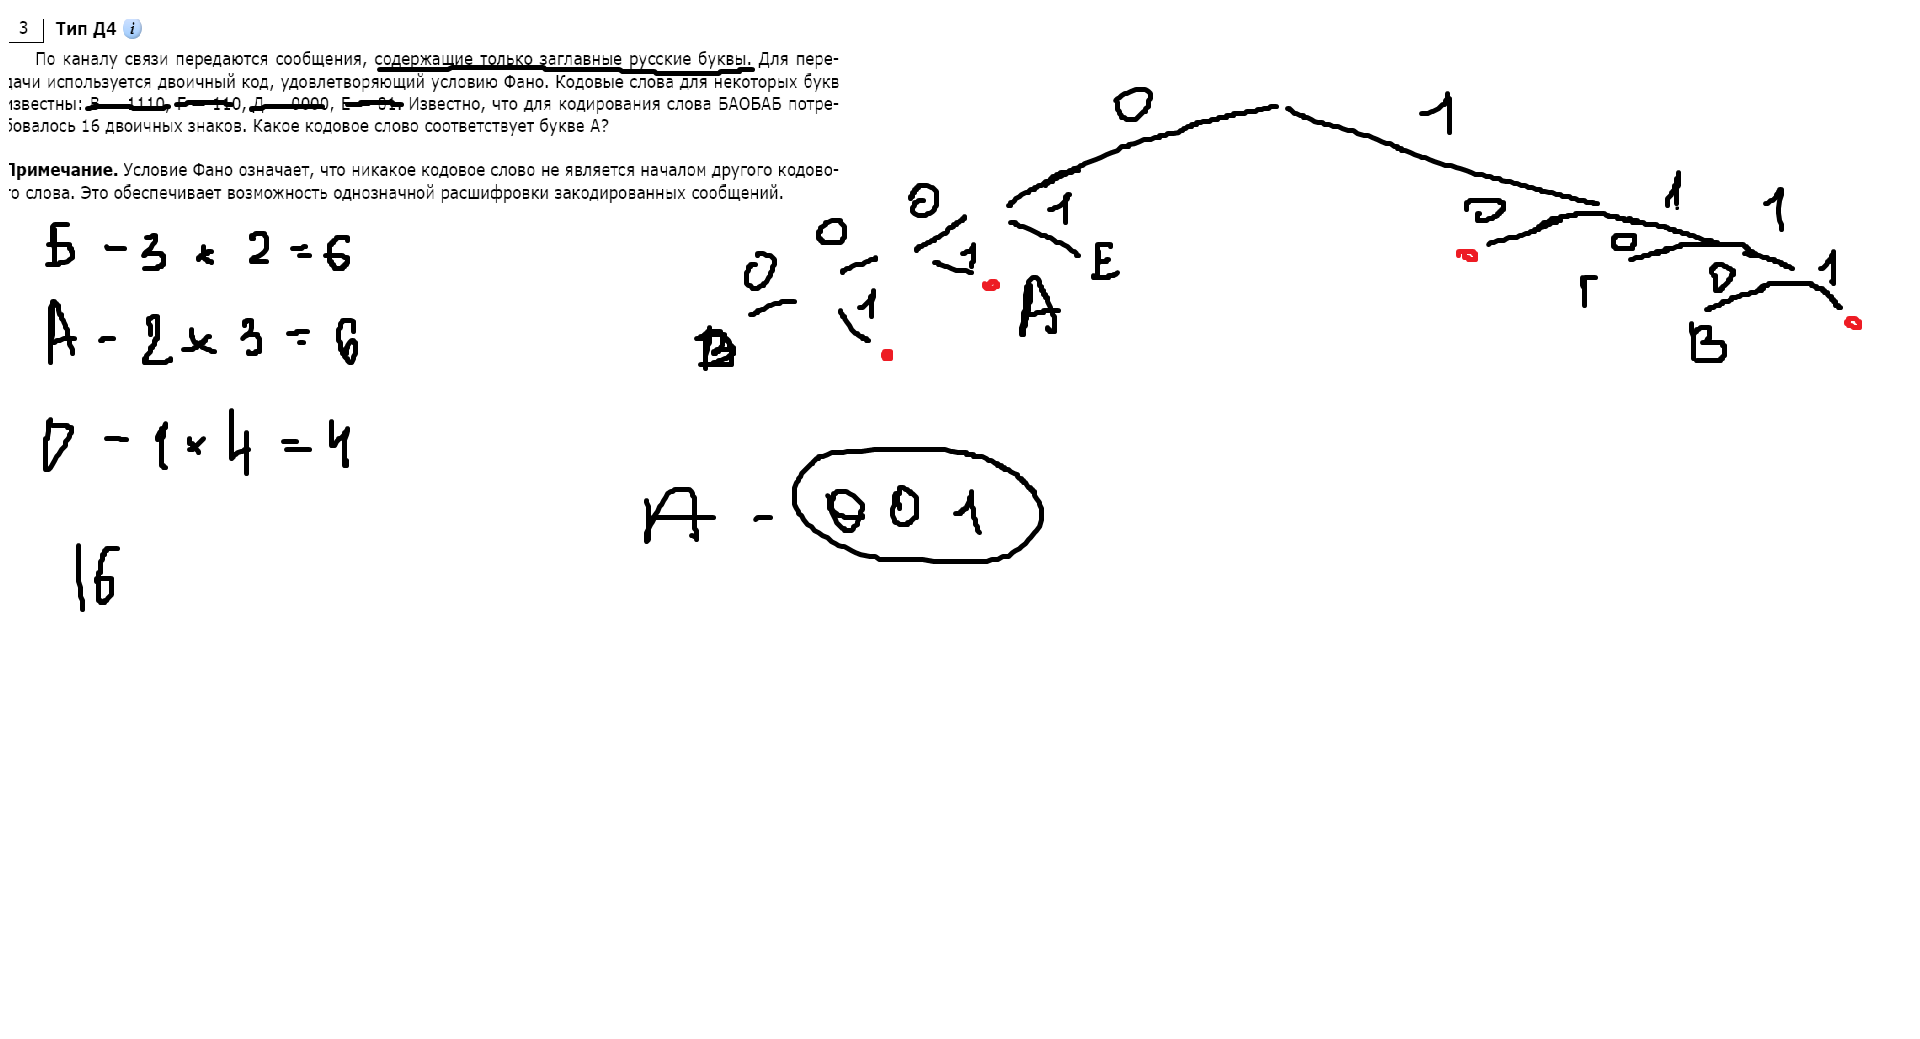 3 Тип Д4 i
По каналу связи передаются сообщения, содержащие только заглавные русские буквы. Для пере-
дачи используется двоичный код, удовлетворяющий условию Фано. Кодовые слова для некоторых букв
известны: В — 1110, Г — 110, Д — 0000, Е — 01. Известно, что для кодирования слова БАОБАБ потре-
бовалось 16 двоичных знаков. Какое кодовое слово соответствует букве А?
Примечание. Условие Фано означает, что никакое кодовое слово не является началом другого кодово-
го слова. Это обеспечивает возможность однозначной расшифровки закодированных сообщений.
Б - 3 * 2 = 6
А - 2 * 3 = 6
О - 1 * 4 = 4
16
0 1
0 1 0 1 1
0 1 Е 0 0 1
0 1 А Г В
А - 001